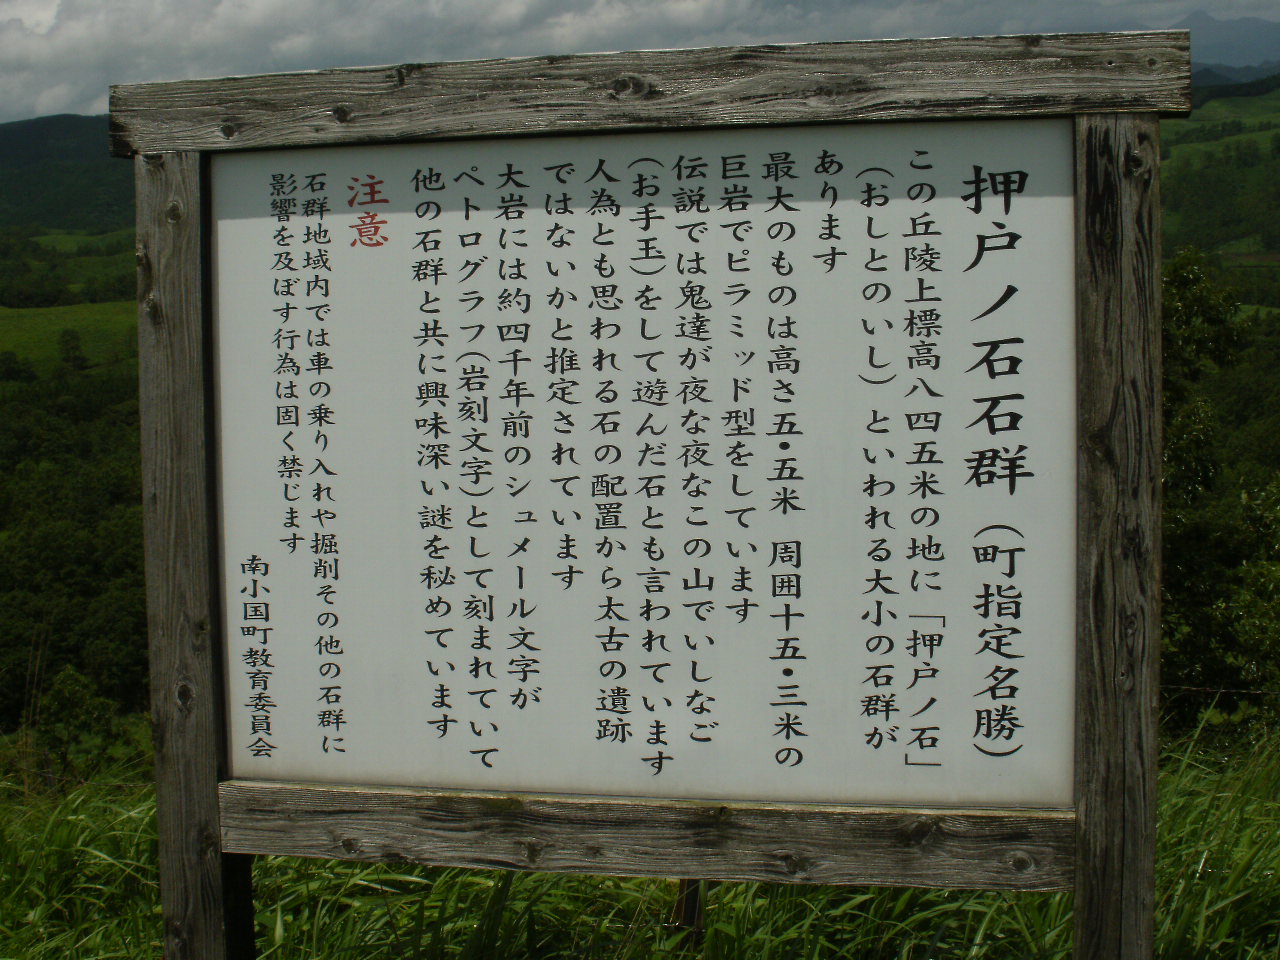 押戸ノ石石群（町指定名勝）
この丘陵上標高八四五米の地に「押戸ノ石」
（おしとのいし）といわれる大小の石群が
あります
最大のものは高さ五・五米　周囲十五・三米の
巨岩でピラミッド型をしています
伝説では鬼達が夜な夜なこの山でいしなご
（お手玉）をして遊んだ石とも言われています
人為とも思われる石の配置から太古の遺跡
ではないかと推定されています
大岩には約四千年前のシュメール文字が
ペトログラフ（岩刻文字）として刻まれていて
他の石群と共に興味深い謎を秘めています
注意
石群地域内では車の乗り入れや掘削その他の石群に
影響を及ぼす行為は固く禁じます
南小国町教育委員会